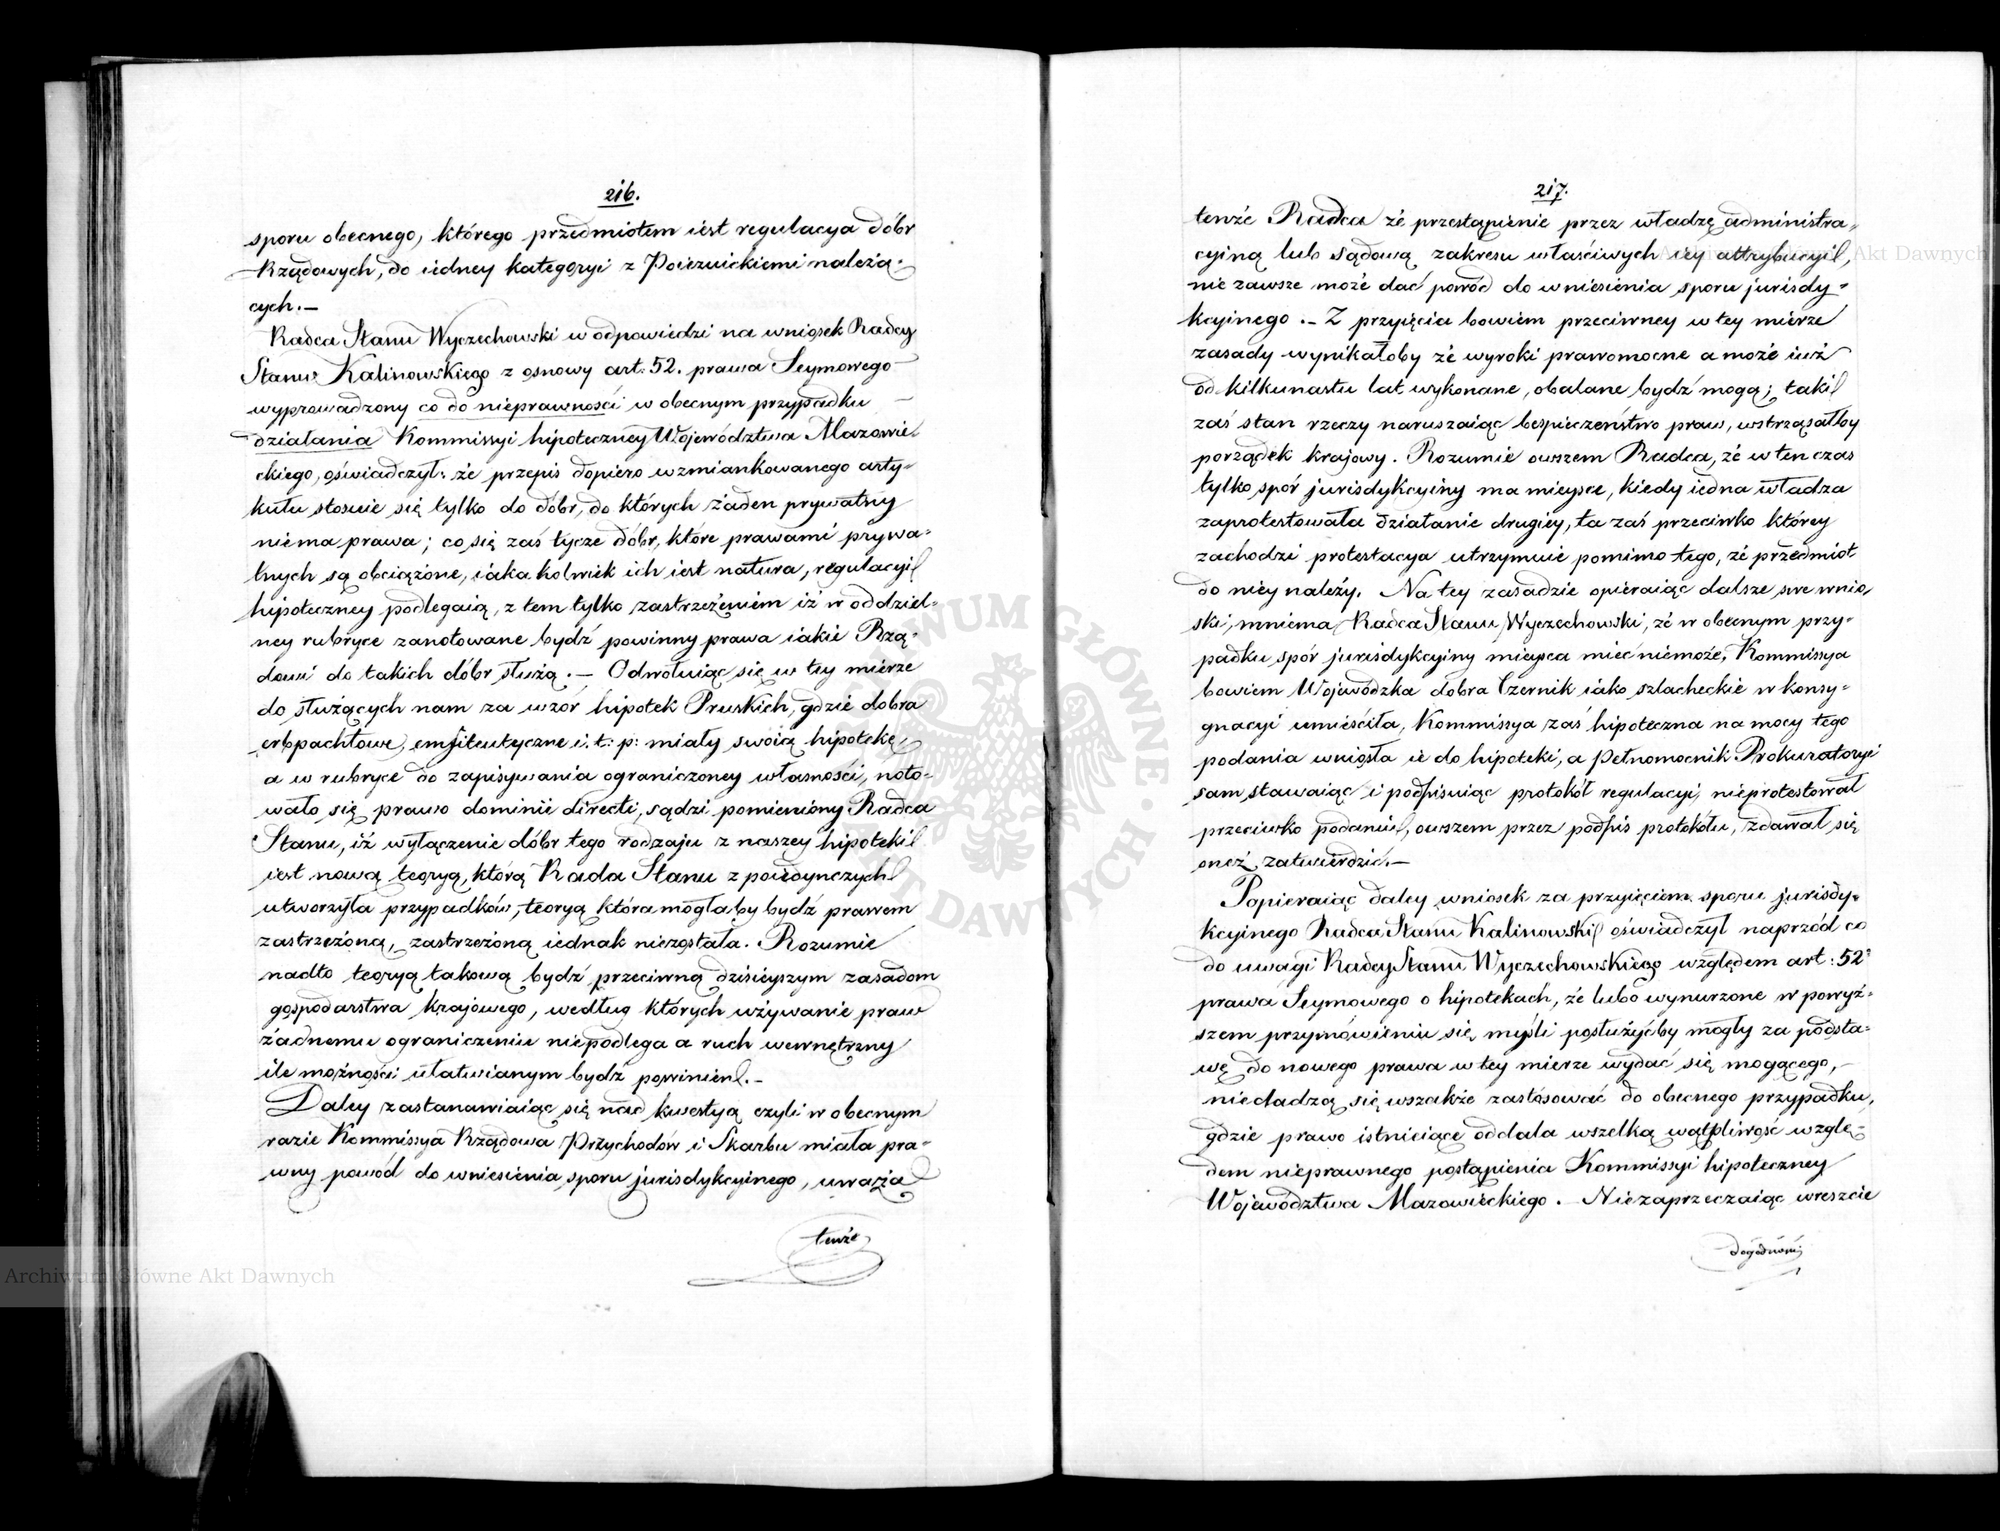 216.
sporu obecnego, którego przedmiotem iest regulacya dóbr
Rządowych, do iedney kategoryi z Poiezuickiemi należą-
cych.—
Radca Stanu Wyczechowski w odpowiedzi na wniosek Radcy
Stanu Kalinowskiego z osnowy art: 52. prawa Seymowego
wyprowadzony co do nieprawności w obecnym przypadku
działania Kommissyi hipoteczney Województwa Mazowie-
ckiego, oświadczył: że przepis dopiero wzmiankowanego arty-
kułu stosuie się tylko do dóbr, do których żaden prywatny
niema prawa; co się zaś tycze dóbr, które prawami prywa-
tnych są obciążone, iaka kolwiek ich iest natura, regulacyi
hipoteczney podlegaią, z tem tylko zastrzeżeniem iż w oddziel-
ney rubryce zanotowane bydź powinny prawa iakie Rzą-
dowi do takich dóbr służą.— Odwołuiąc się w tey mierze
do służących nam za wzór hipotek Pruskich, gdzie dobra
erbpachtowe, emfiteutyczne i. t. p: miały swoią hipotekę,
a w rubryce do zapisywania ograniczoney własności, noto-
wało się prawo dominii directi, sądzi pomieniony Radca
Stanu, iż wyłączenie dóbr tego rodzaju z naszey hipoteki
iest nową teoryą, którą Rada Stanu z poiedynczych
utworzyła przypadków, teoryą która mogłaby bydź prawem
zastrzeżoną, zastrzeżoną iednak niezostała. Rozumie
nadto teoryą takową bydź przeciwną dzisieyszym zasadom
gospodarstwa krajowego, według których używanie praw
żadnemu ograniczeniu niepodlega a ruch wewnętrzny
ile możności ułatwianym bydź powinien.—
Daley zastanawiaiąc się nad kwestyą czyli w obecnym
razie Kommissya Rządowa Przychodów i Skarbu miała pra-
wny powód do wniesienia sporu jurisdykcyinego, uważa
tenże
217.
tenże Radca że przestąpienie przez władzę administra-
cyiną lub sądową zakresu właściwych iey attrybucyi,
nie zawsze może dać powód do wniesienia sporu jurisdy-
kcyinego.— Z przyięcia bowiem przeciwney w tey mierze
zasady wynikałoby że wyroki prawomocne a może iuż
od kilkunastu lat wykonane, obalane bydź mogą; taki
zaś stan rzeczy naruszaiąc bespieczeństwo praw, wstrząsałby
porządek krajowy. Rozumie owszem Radca, że w ten czas
tylko spór jurisdykcyiny ma mieysce, kiedy iedna władza
zaprotestowała działanie drugiéy, ta zaś przeciwko którey
zachodzi protestacya utrzymuie pomimo tego, że przedmiot
do niey należy. Na tey zasadzie opieraiąc dalsze swe wnio-
ski, mniema Radca Stanu Wyczechowski, że w obecnym przy-
padku spór jurisdykcyiny mieysca mieć niemoże, Kommissya
bowiem Wojewódzka dobra Czernik iako szlacheckie w konsy-
gnacyi umieściła, Kommissya zaś hipoteczna na mocy tego
podania wniosła ie do hipoteki, a Pełnomocnik Prokuratoryi
sam stawaiąc i podpisuiąc protokół regulacyi, nieprotestował
przeciwko podaniu, owszem przez podpis protokółu, zdawał się
oneż zatwierdzić.—
Popieraiąc daley wniosek za przyięciem sporu jurisdy-
kcyinego Radca Stanu Kalinowski oświadczył naprzód co
do uwagi Radcy Stanu Wyczechowskiego względem art: 52°
prawa Seymowego o hipotekach, że lubo wynurzone w powyż-
szem przymówieniu się myśli posłużyćby mogły za podsta-
wę do nowego prawa w tey mierze wydać się mogącego,—
niedadzą się wszakże zastósować do obecnego przypadku,
gdzie prawo istnieiące oddala wszelką wątpliwość wzglę-
dem nieprawnego postąpienia Kommissyi hipoteczney
Województwa Mazowieckiego.— Niezaprzeczaiąc wreszcie
Archiwum Główne Akt Dawnych
Archiwum Główne Akt Dawnych
ARCHIWUM GŁÓWNE AKT DAWNYCH